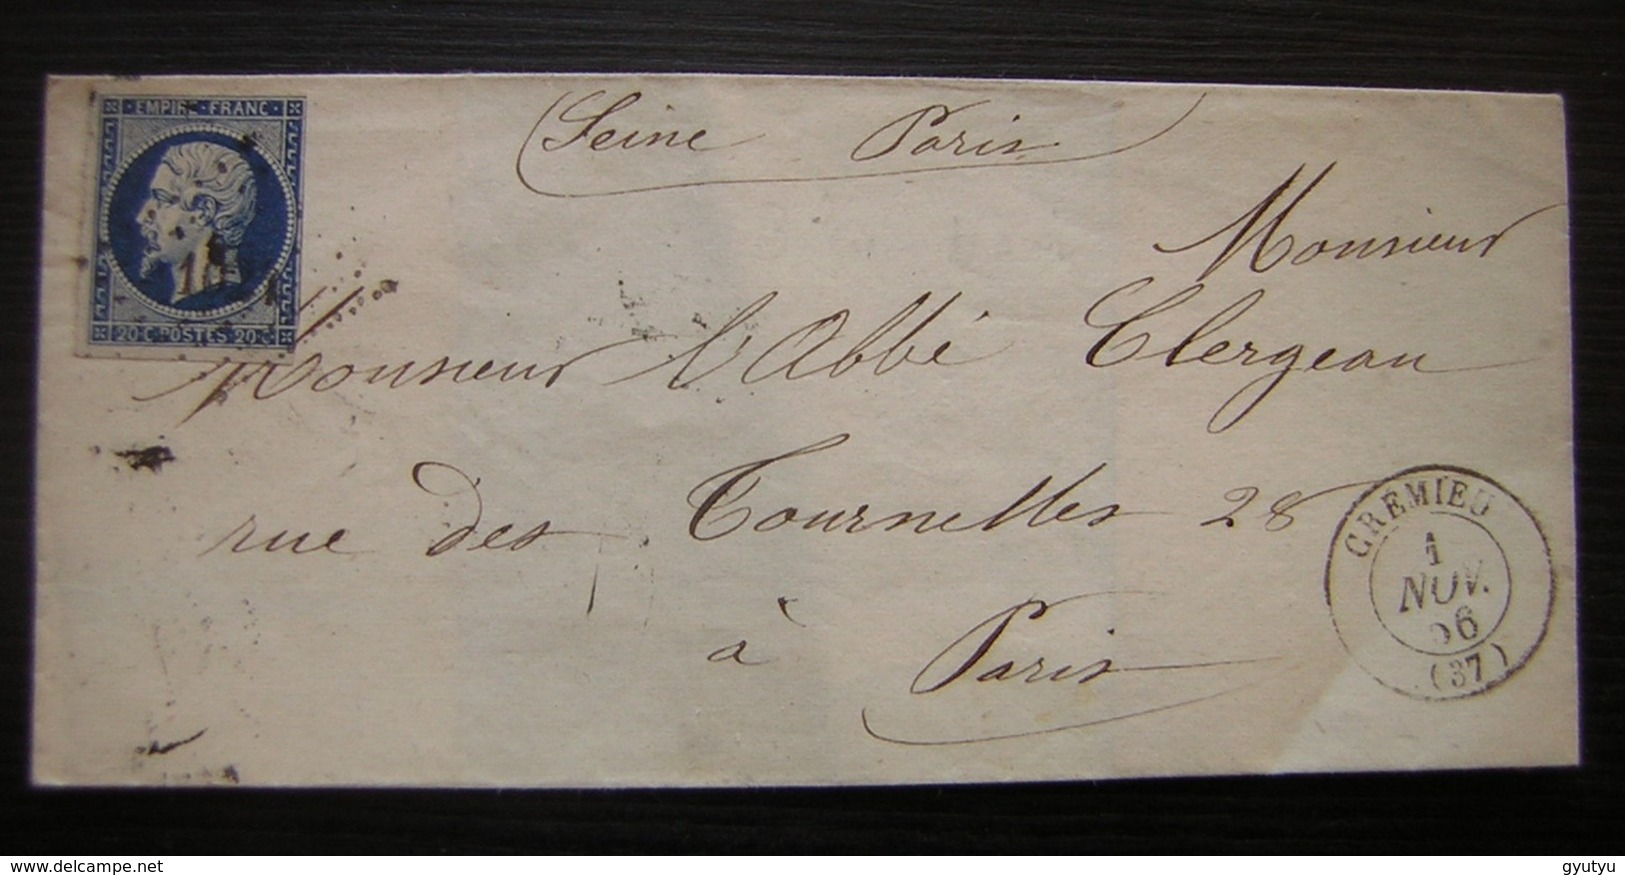 EMPIRE FRANC
20 C POSTES 20 C
(Seine Paris)
Monsieur
Monsieur l'Abbé Clergeau
rue des Tournelles 28
à Paris
CREMIEU
1
NOV.
56
(37)
delcampe.net
gyutyu